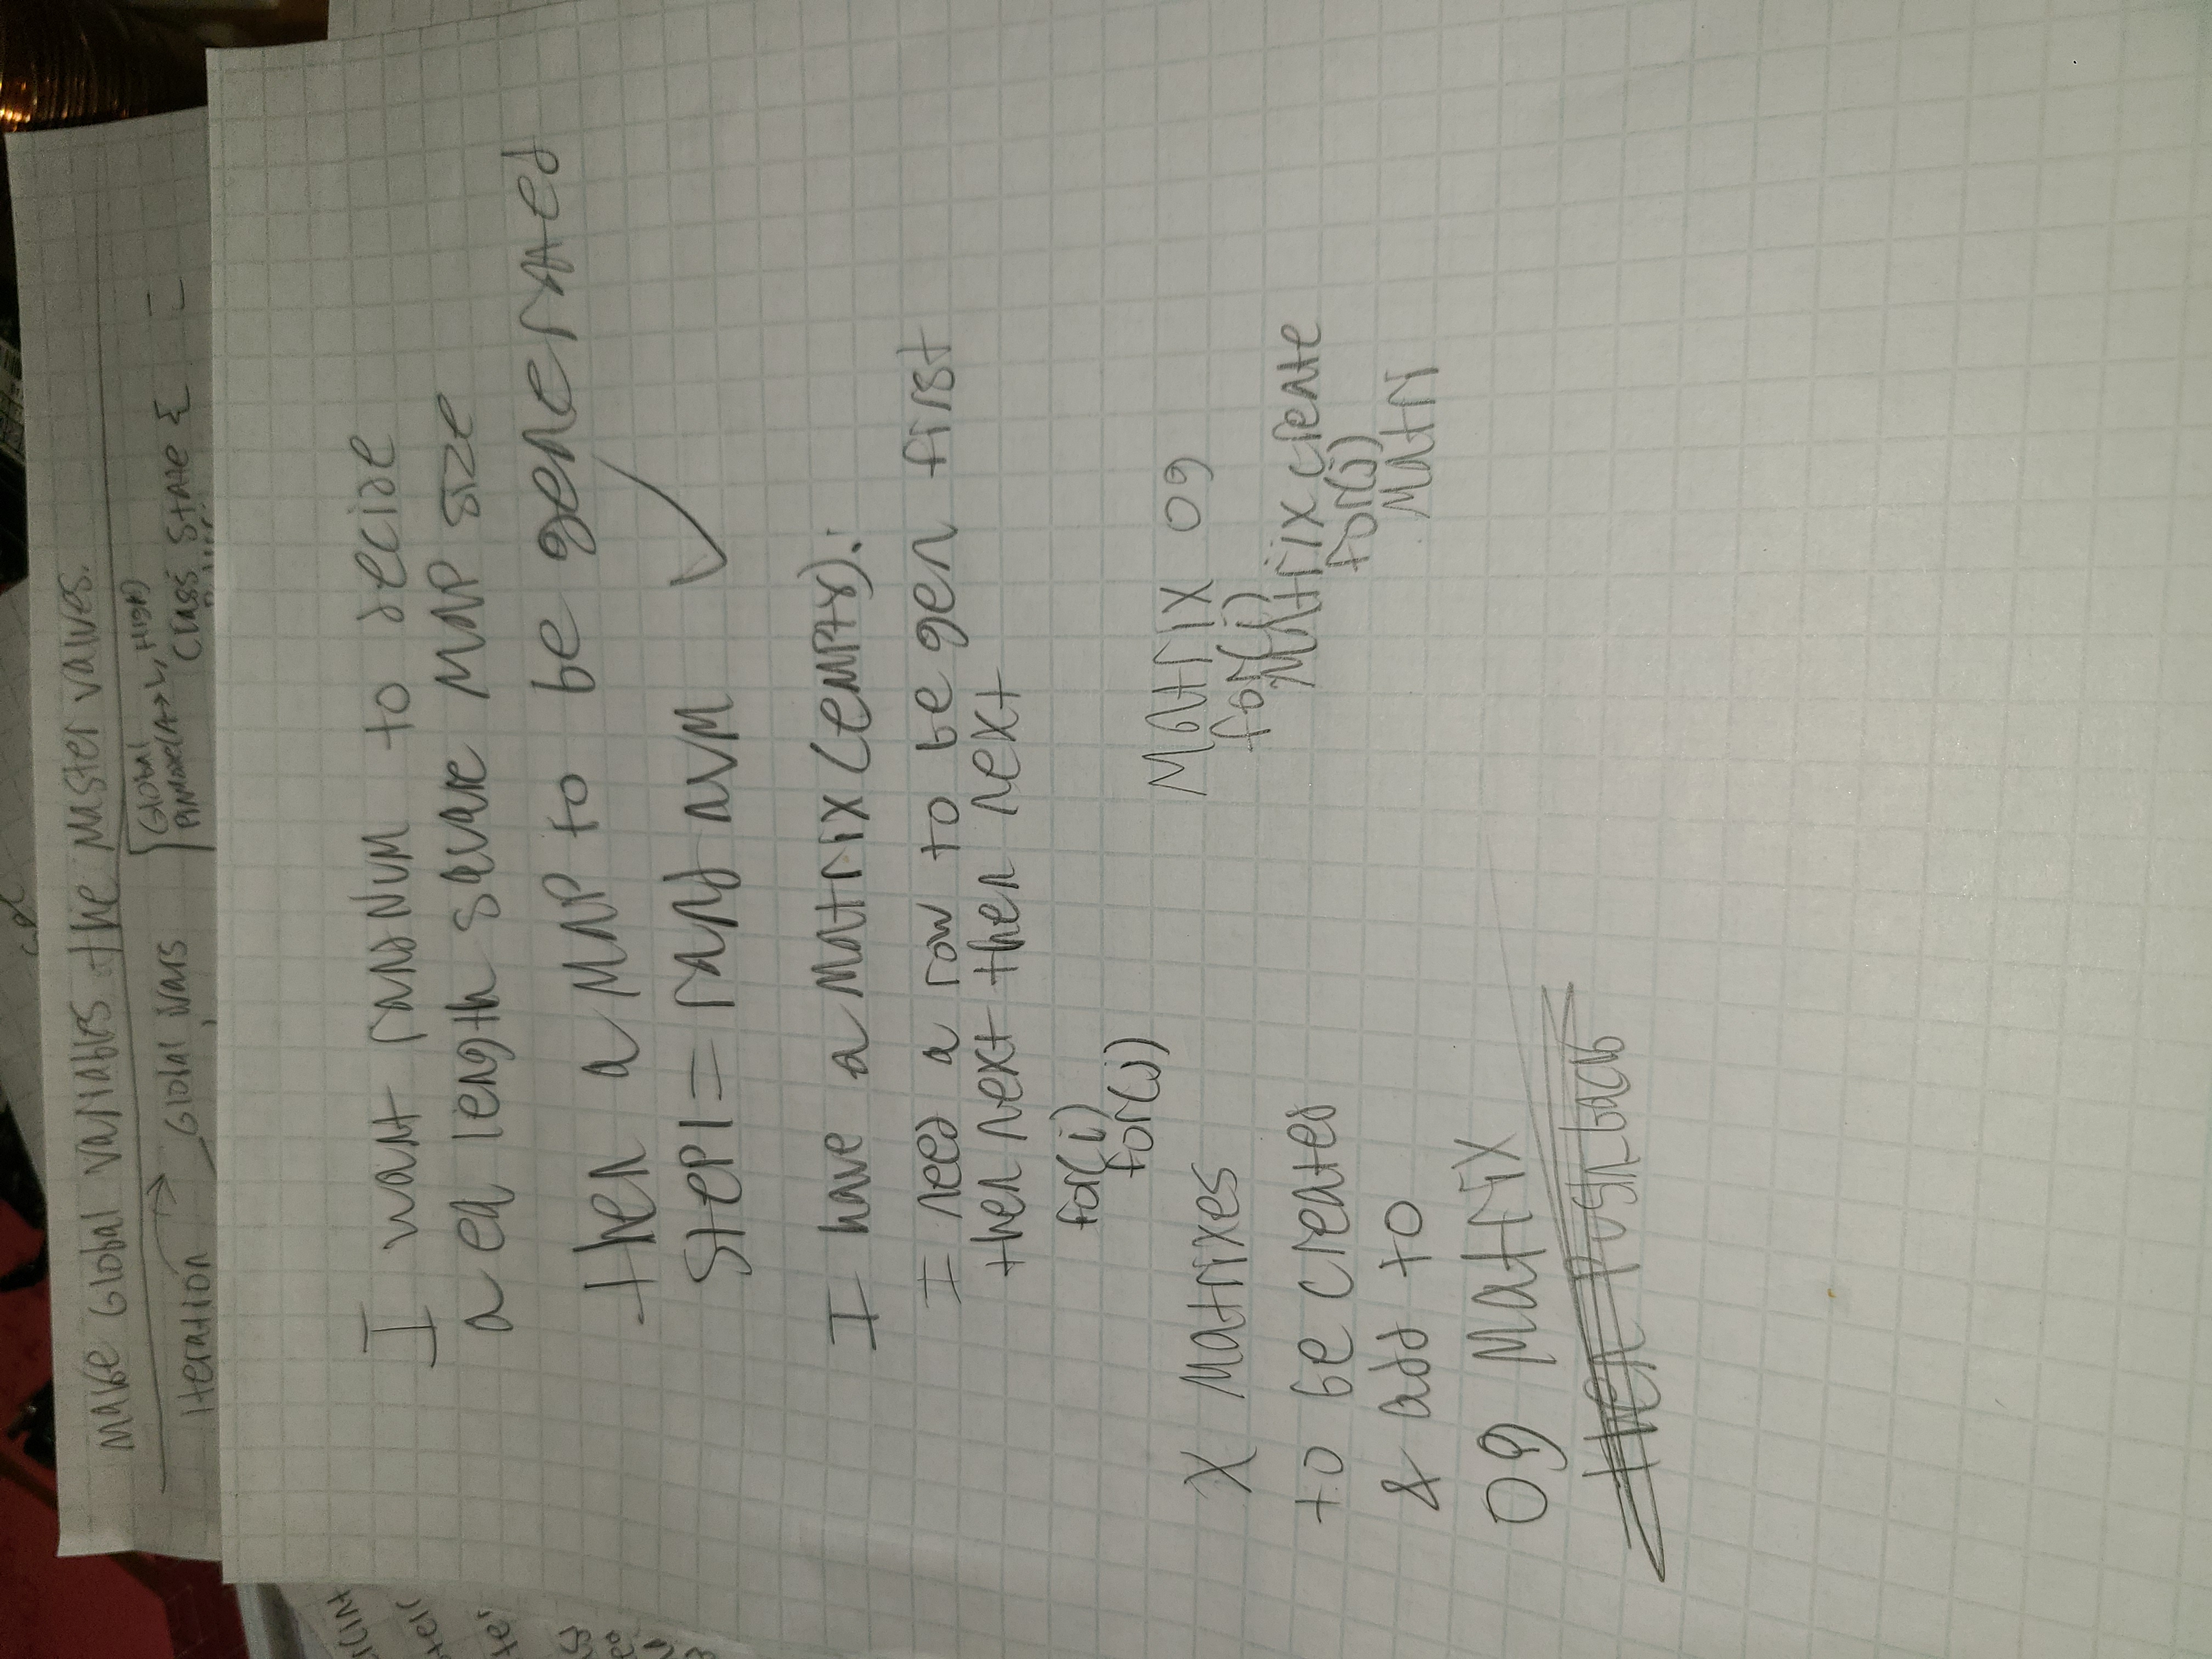 Make Global variables the Master values.
Iteration Global vars
Global
PinMode(A→L, High)
Class State {
I want randNum to decide
a eq length square MAP size
then a MAP to be generated
step1 = rand num
I have a Matrix (empty).
I need a row to be gen first
then next then next
for(i)
for(j)
X Matrixes
to be created
& add to
og Matrix
then Push_back
Matrix og
for(i)
Matrix create
for(j)
Matri